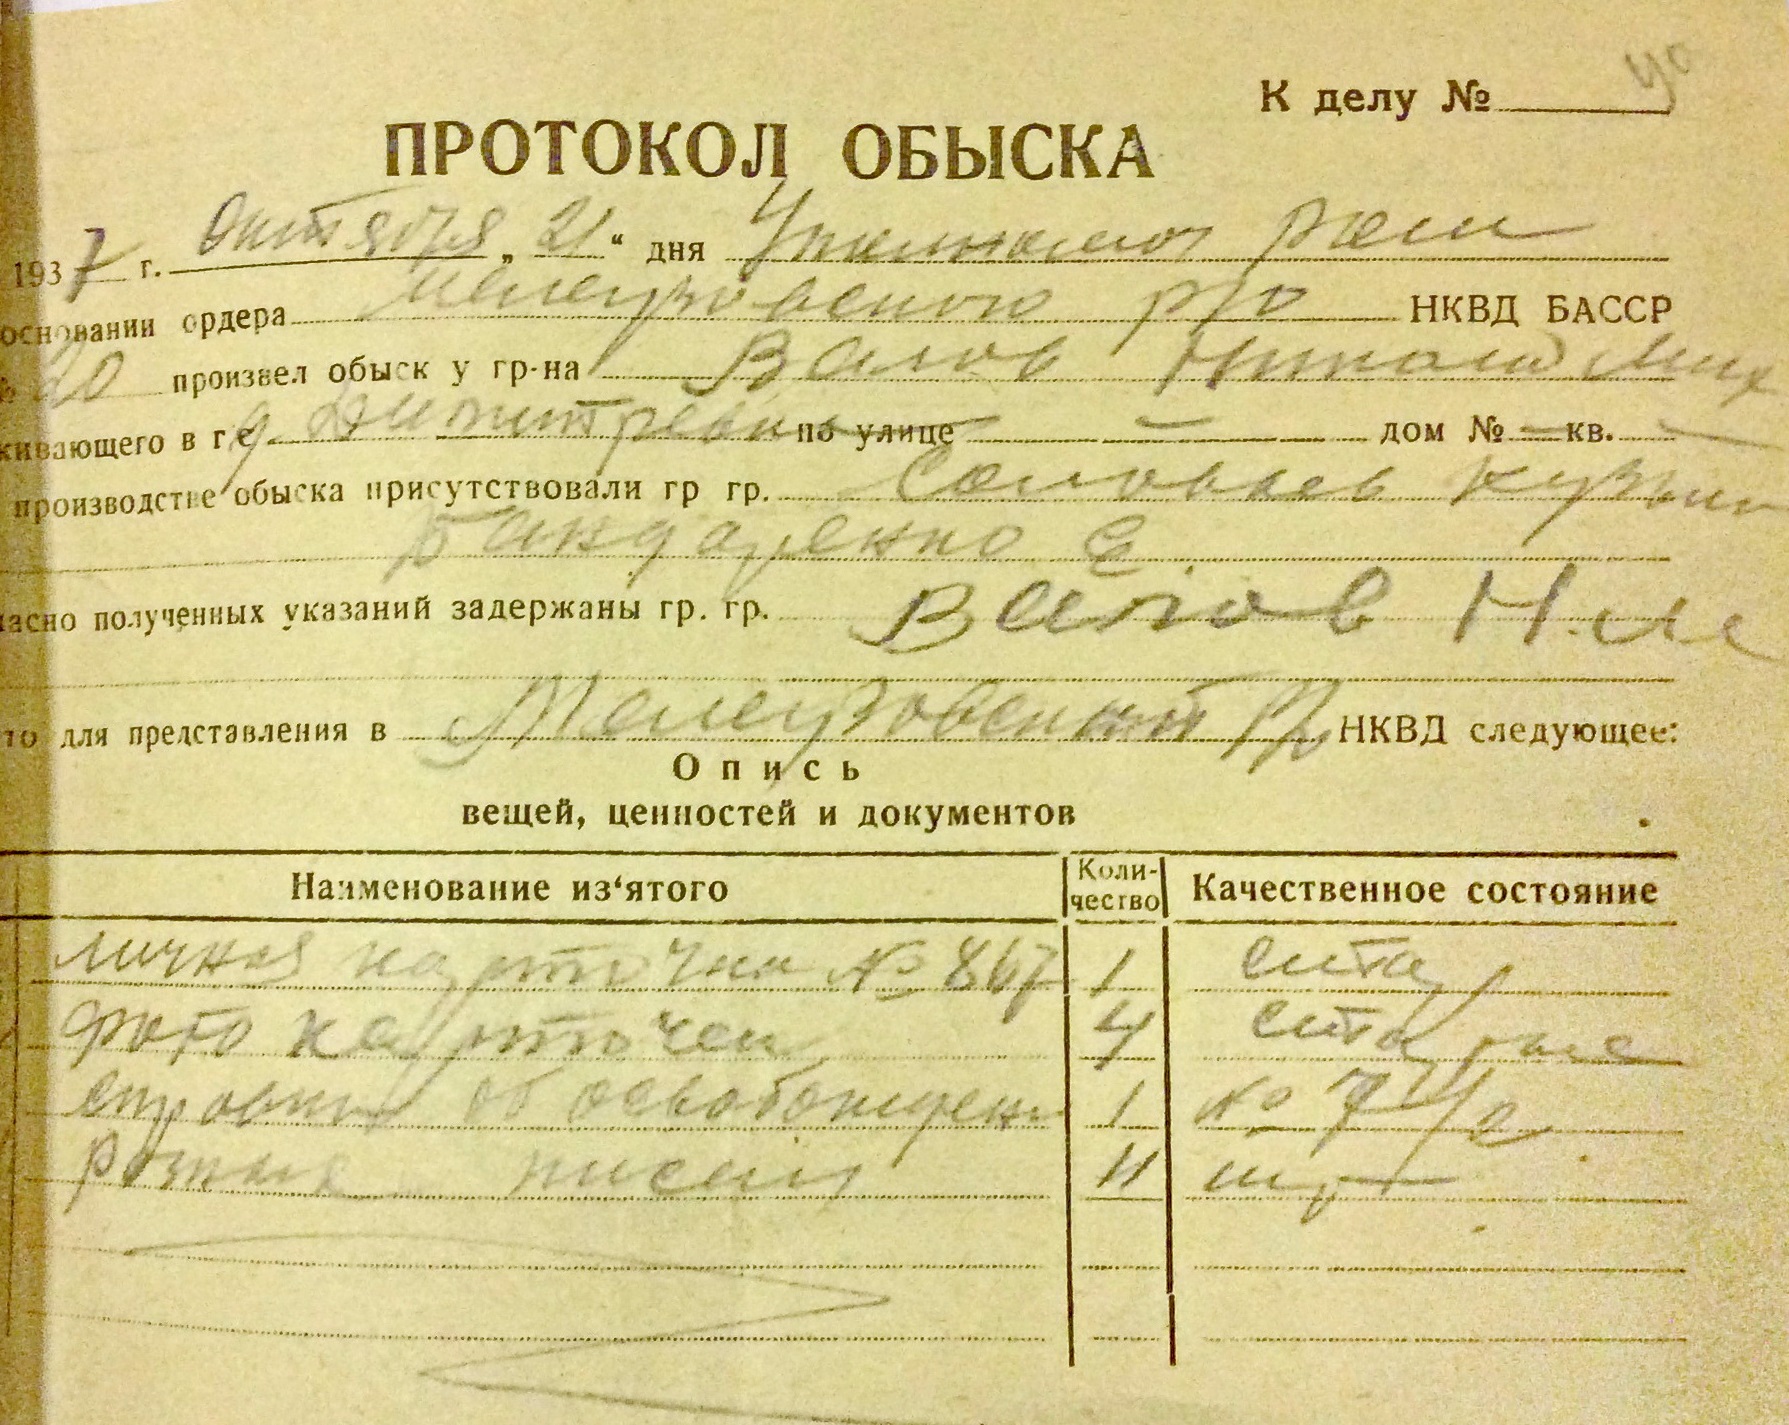 К делу №
ПРОТОКОЛ ОБЫСКА
1937 г. октября „21“ дня
основании ордера Мелеузовского р/о НКВД БАССР
20 произвел обыск у гр-на Валов Николай Мих
живающего в г с д по улице — дом № — кв. —
производстве обыска присутствовали гр гр. Соловьев Кузьма
Бандаренко Е
ласно полученных указаний задержаны гр. гр. Валов Н. М
то для представления в Мелеузовский р/о НКВД следующее:
Опись
вещей, ценностей и документов
Наименование из‘ятого Коли-чество Качественное состояние
личная карточка № 867 1 стар
фото карточек 4 старые
справка об освобожден 1 №
разных писем 11 шт —